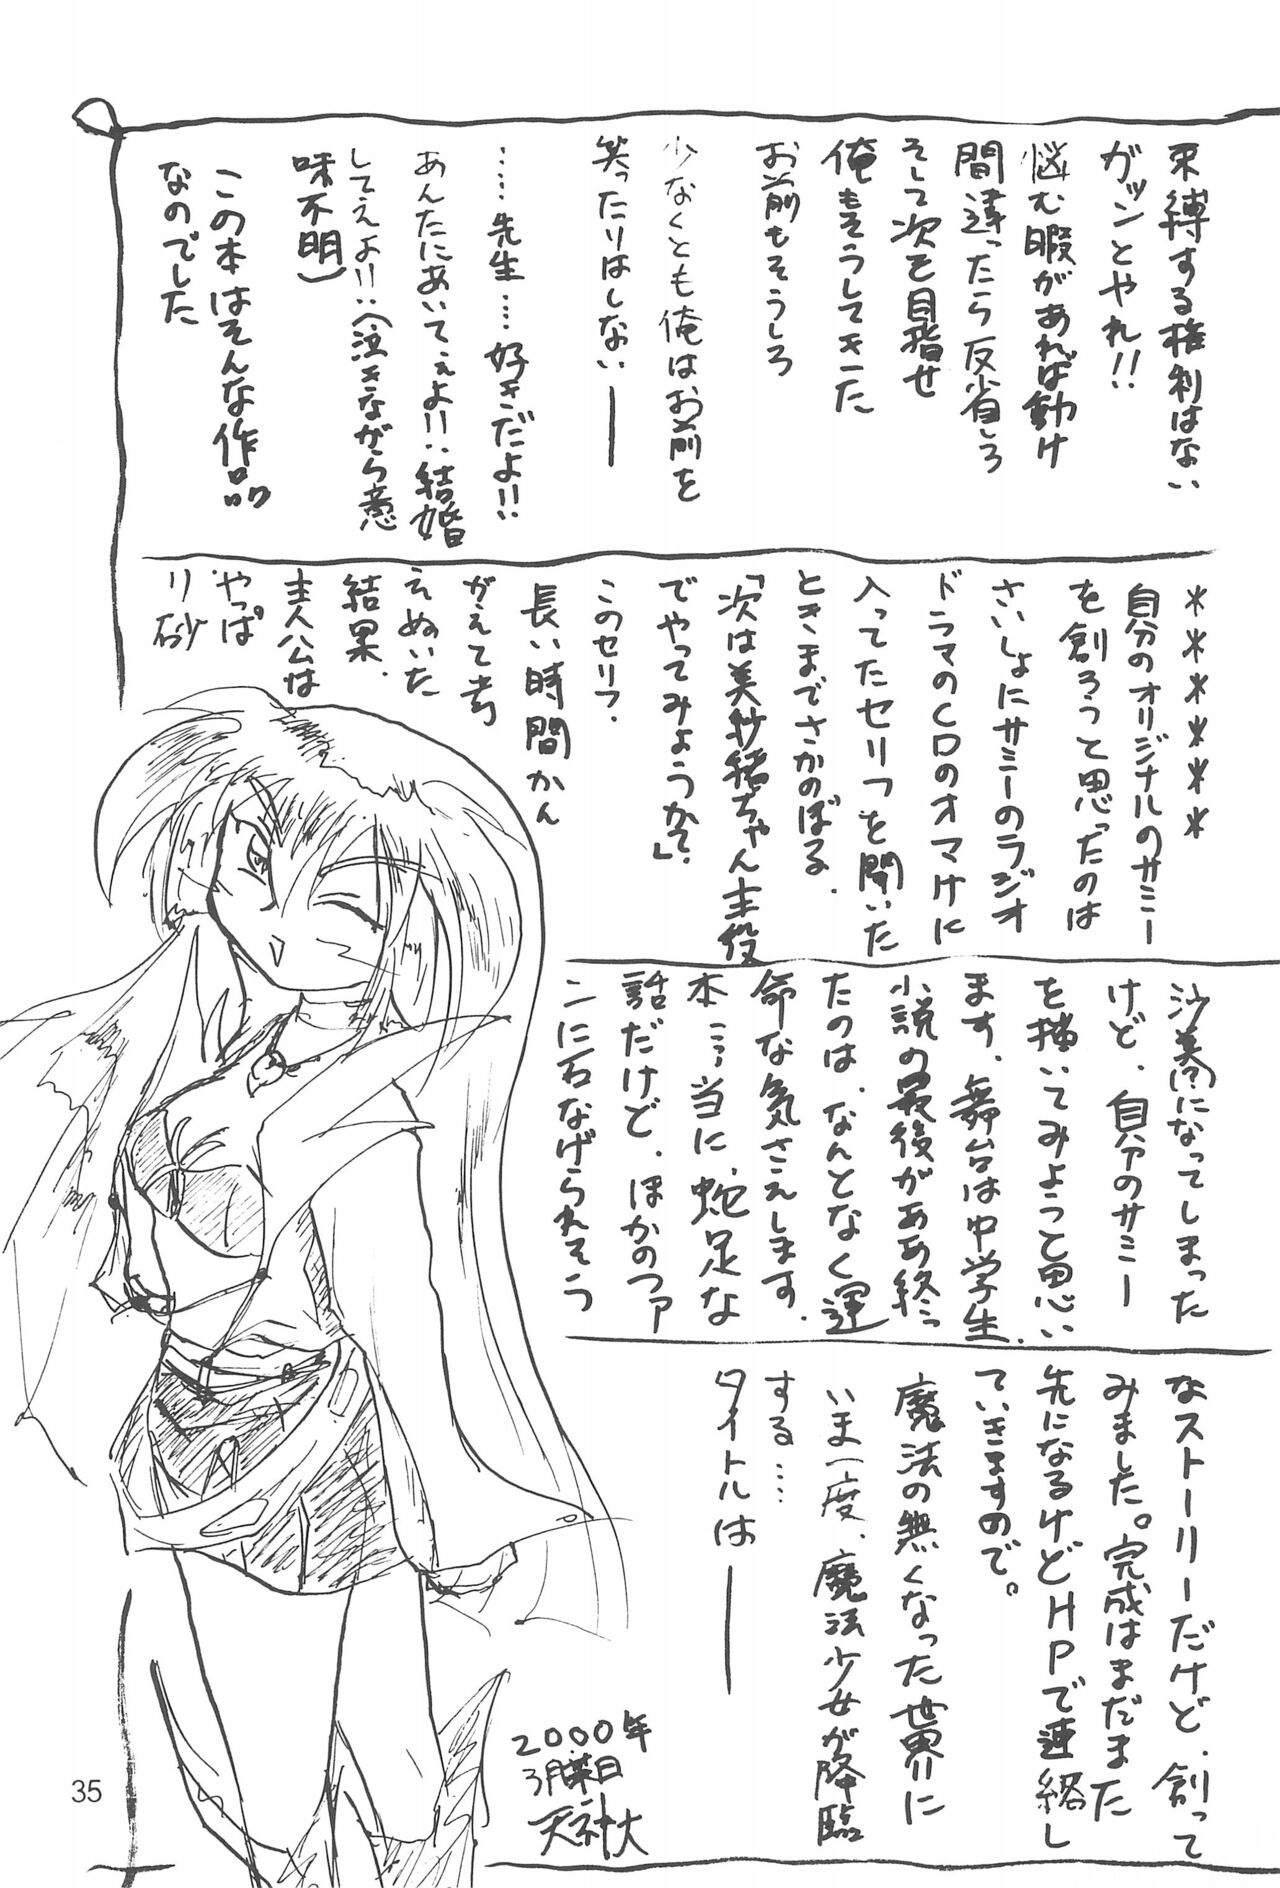 束縛する権利はない
ガツンとやれ!!
悩む暇があれば動け
間違ったら反省しろ
そして次を目指せ
俺もそうしてきた
お前もそうしろ
少なくとも俺はお前を
笑ったりはしない――
……先生…好きだよ!!
あんたにあいてぇよ!!‥結婚
してえよ!!‥(泣きながら意
味不明)
この本はそんな作品
なのでした
******
自分のオリジナルのサミー
を創ろうと思ったのは
さいしょにサミーのラジオ
ドラマのCDのオマケに
入ってたセリフを聞いた
ときまでさかのぼる.
「次は美紗緒ちゃん主役
でやってみようかで」
このセリフ.
長い時間かん
がえて考
えぬいた
結果.
主人公は
やっぱ
り砂
沙美になってしまった
けど、自分のサミー
を描いてみようと思い
ます.舞台は中学生.
小説の最後がああ終っ
たのは、なんとなく運
命な気さえします.
本当に、蛇足な
話だけど、ほかのファ
ンに石なげられそう
なストーリーだけど、創って
みました。完成はまだまた
先になるけどHPで連絡し
ていきますので。
魔法の無くなった世界に
いま一度、魔法少女が降臨
する……
タイトルは――
2000年
3月某日
天神大
35